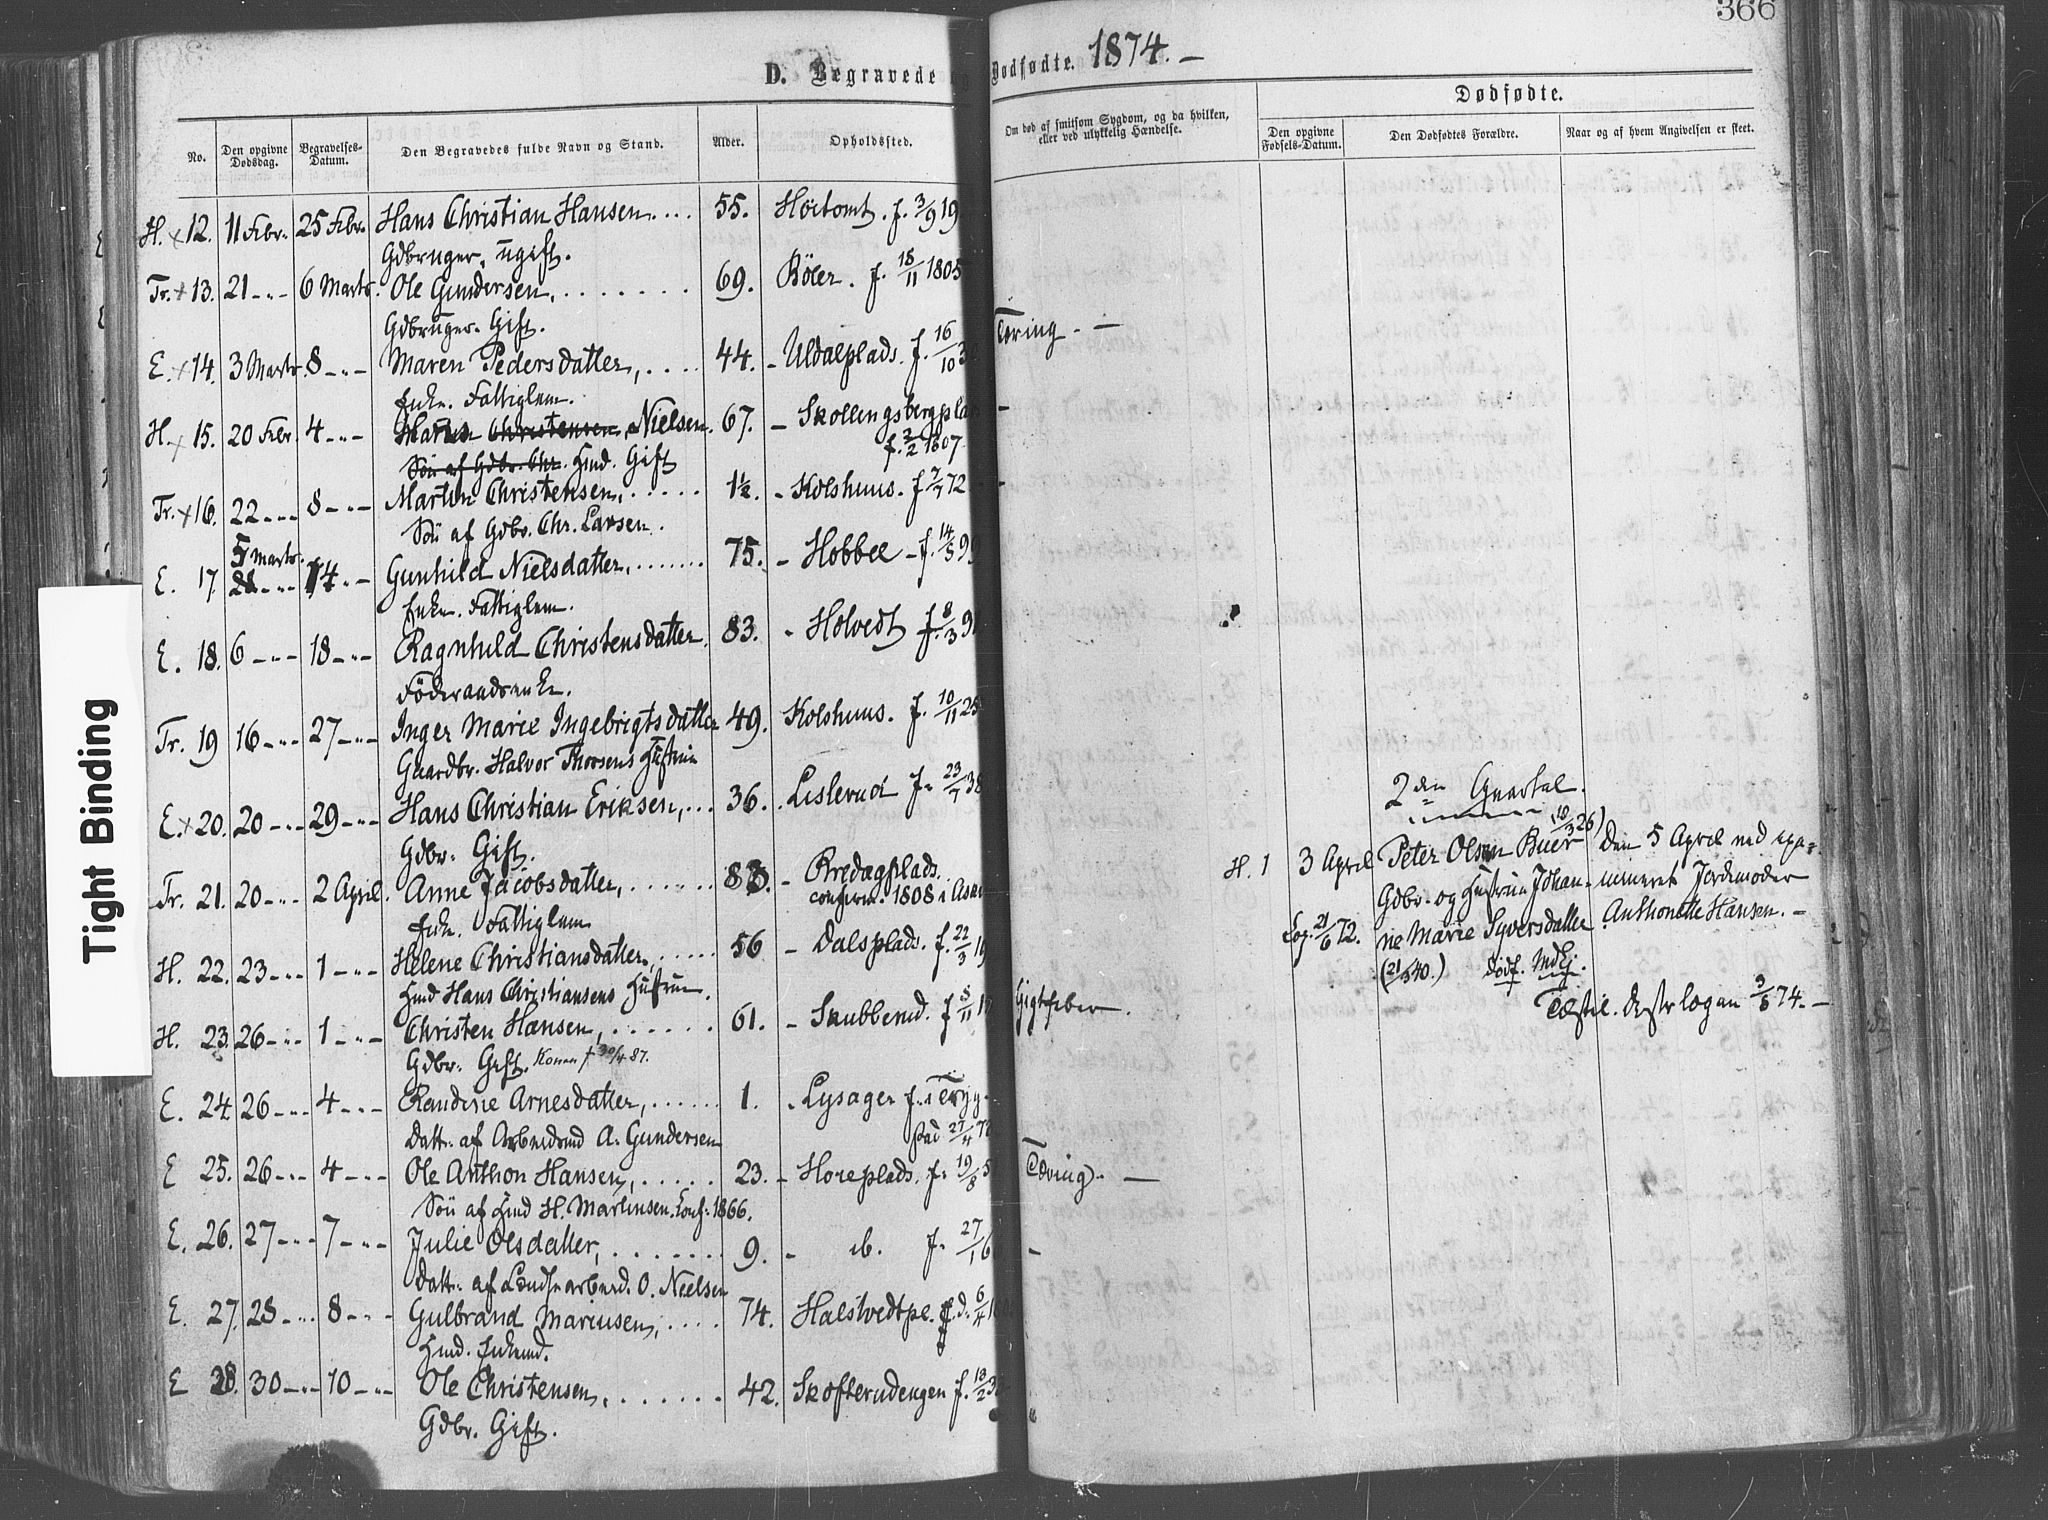 366
D. Begravede og Dødfødte. 1874. —
No.
Den opgivne Dødsdag.
Begravelses-Datum.
Den Begravedes fulde Navn og Stand.
Alder.
Opholdssted.
Om død af smitsom Sygdom, og da hvilken, eller ved ulykkelig Hændelse.
Dødfødte.
Den opgivne Fødsels-Datum.
Den Dødfødtes Forældre.
Naar og af hvem Angivelsen er skeet.
H. x 12. 11 Febr. 25 Febr. Hans Christian Hansen.... 55. Höitomt. f. 3/9 19
Gdbruger, ugift.
Tr. x 13. 21 -"- 6 Marts. Ole Gundersen, ....... 69. Böler. f. 18/11 1805
Gdbruger. Gift.
E. x 14. 3 Marts. 8 -"- Maren Pedersdatter, .... 44. - Uldalplads. f. 16/10 Tæring. —
Enke. Fattiglem.
H. x 15. 20 Febr. 4 -"- Hans Christensen, Nielsen. 67. - Skollingsbergplads
f. 2/2 1807
Sön af Gdbr. Chr. Hmd. Gift
Tr. x 16. 22 -"- 8 -"- Martin Christensen, ..... 1½. - Kolshuus. f. 7/7 72
Sön af Gdbr. Chr. Larsen.
5 Marts.
E. 17. 14 -"- Gunhild Nielsdatter, ...... 75. - Hobbel - f. 14/5 99
Enke. Fattiglem.
E. 18. 6 -"- 18 -"- Ragnhild Christensdatter. 83. - Holvedt f. 8/3 91
Föderaadsenke.
Tr. 19 16 -"- 27 -"- Inger Marie Ingebrigtsdatter 49. Kolshuus. f. 10/11 25
Gaardbr. Halvor Thorsens Hustrue
E. x 20. 20 -"- 29 -"- Hans Christian Eriksen, ... 36. . Lislerud f. 23/7 38
Gdbr. Gift.
Tr. 21. 20 -"- 2 April. Anne Jacobsdatter, ...... 83. - Bredagplads.
confirm. 1808 i Asak
Enke. Fattiglem
H. 22. 23 -"- 1 -"- Helene Christiansdatter, ..... 56 - Dalsplads. f. 22/3
Hmd Hans Christiansens Hustrue.
H. 23. 26 -"- 1 -"- Christen Hansen, ...... 61. - Skubberud. f. 8/11 Gigtfeber.
Gdbr. Gift. Konen † 30/4 87.
E. 24. 26 -"- 4 -"- Randine Arnesdatter, ...... 1. - Lysager f. i Tryg-
stad 27/4
Datt. af Arbeidsmd A. Gundersen
E 25. 26 -"- 4 -"- Ole Anthon Hansen, ..... 23. - Horeplads. f. 19/8 5 Tæring. —
Sön af Hmd H. Martinsen. Conf. 1866.
E. 26. 27 -"- 7 -"- Julie Olsdatter, ........ 9. - ib. f. 27/1 6
Datt. af Landarbeid. O. Nielsen
E. 27. 28 -"- 8 -"- Gulbrand Mariusen, .... 74. Halstvedtpl. f. d. 6/4
Hmd. Enkemd.
E 28. 30 -"- 10 -"- Ole Christensen, ....... 42. Skofterudengen f. 13/2
Gdbr. Gift.
2den Qvartal.
H. 1 3 April Peter Olsen Buer (10/3 26) Den 5 April ved exa-
Gdbr. og Hustrue Johan- mineret Jordemoder
Cop. 21/6 72. ne Marie Syversdatter Anthonette Hansen. —
(21/ 40.) dödf. Mdkj.
destr logan 3/8 74. —
Tight Binding